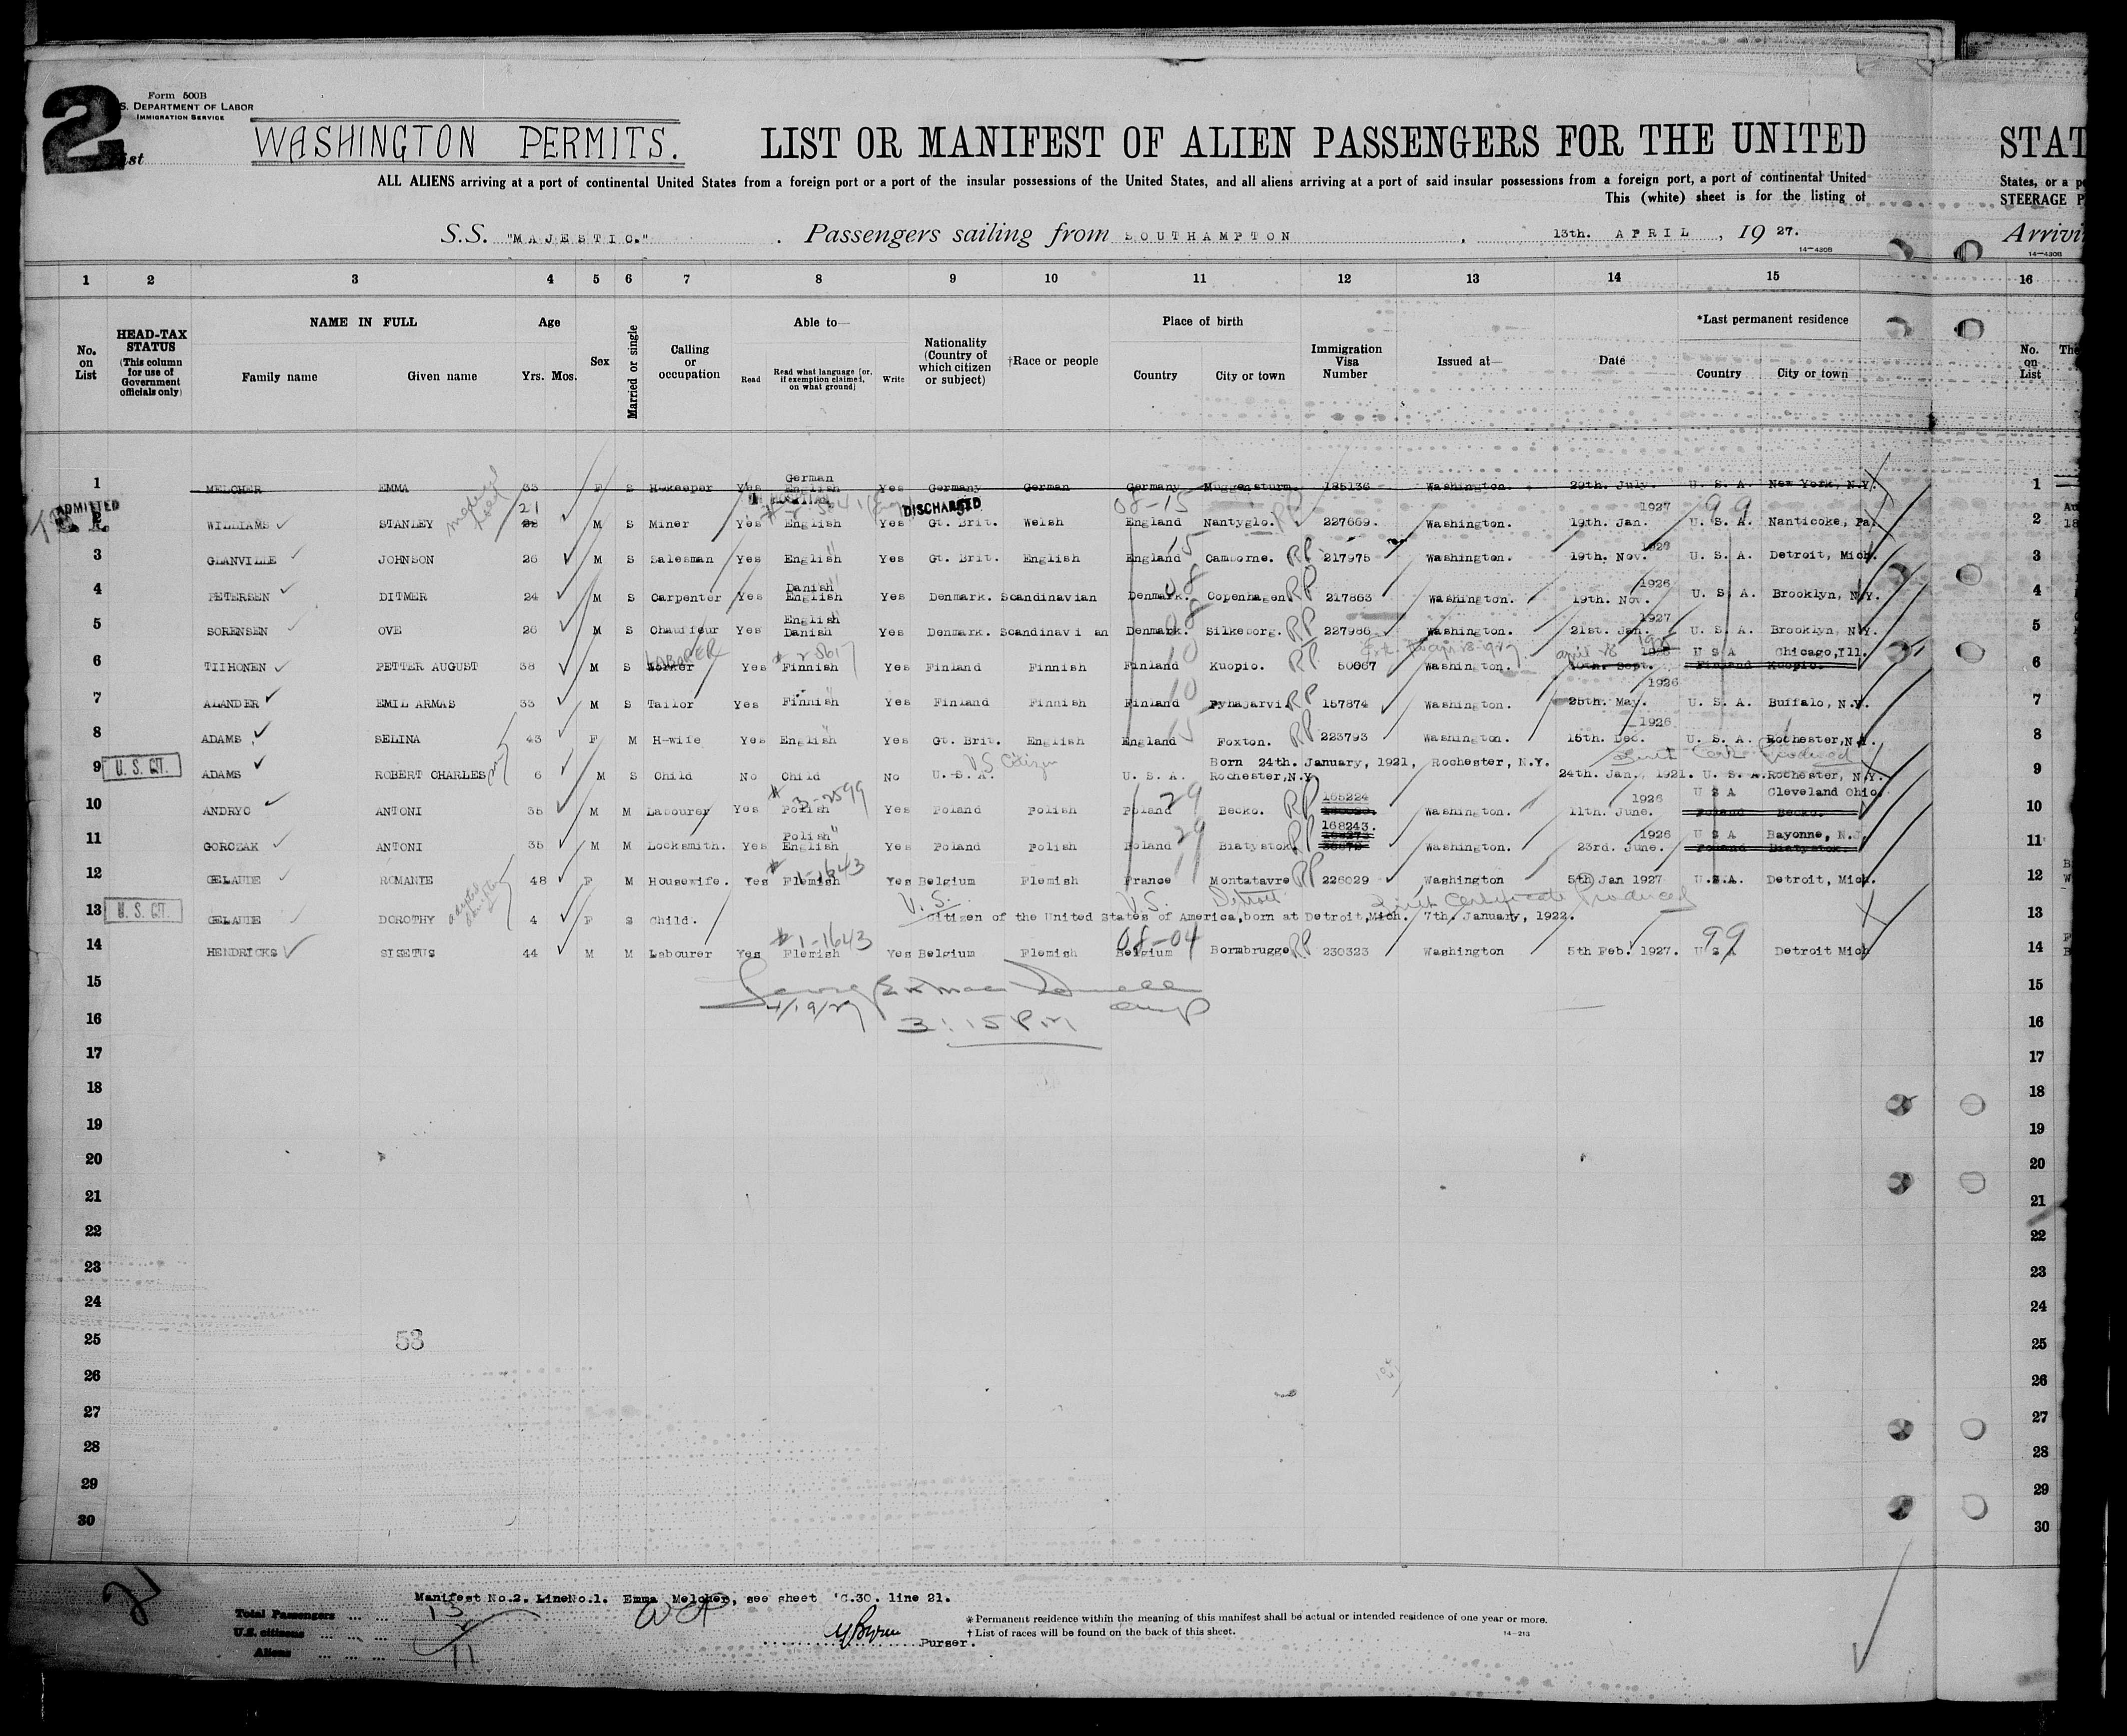 2
Form 500B
S. DEPARTMENT OF LABOR
IMMIGRATION SERVICE
ist
WASHINGTON PERMITS.
LIST OR MANIFEST OF ALIEN PASSENGERS FOR THE UNITED
STAT
ALL ALIENS arriving at a port of continental United States from a foreign port or a port of the insular possessions of the United States, and all aliens arriving at a port of said insular possessions from a foreign port, a port of continental United
States, or a p
This (white) sheet is for the listing of
STEERAGE P
S.S. "MAJESTIC." . Passengers sailing from SOUTHAMPTON , 13th. APRIL , 19 27.
Arrivi
14—430B
14—430B
1 2 3 4 5 6 7 8 9 10 11 12 13 14 15 16
No. on List
HEAD-TAX STATUS (This column for use of Government officials only)
NAME IN FULL
Family name Given name
Age
Yrs. Mos.
Sex
Married or single
Calling or occupation
Able to—
Read
Read what language [or, if exemption claimed, on what ground]
Write
Nationality (Country of which citizen or subject)
†Race or people
Place of birth
Country City or town
Immigration Visa Number
Issued at—
Date
*Last permanent residence
Country City or town
No. on List
The
1 MELCHER EMMA 33 F S H-keeper Yes German English Yes Germany German Germany Muggensturm. 185136 Washington. 29th. July. U. S. A. New York, N.Y. 1
ADMITTED
DISCHARGED
08-15
99
2 WILLIAMS STANLEY 21 M S Miner Yes English Yes Gt. Brit. Welsh England Nantyglo. 227669. Washington. 19th. Jan. 1927 U. S. A. Nanticoke, Pa. 2
3 GLANVILLE JOHNSON 26 M S Salesman Yes English Yes Gt. Brit. English England 15 Camborne. RP 217975 Washington. 19th. Nov. 1926 U. S. A. Detroit, Mich. 3
4 PETERSEN DITMER 24 M S Carpenter Yes Danish English Yes Denmark. Scandinavian Denmark. 08 Copenhagen RP 217863 Washington. 19th. Nov. 1926 U. S. A. Brooklyn, N.Y. 4
5 SORENSEN OVE 26 M S Chauffeur Yes English Danish Yes Denmark. Scandinavi an Denmark. 08 Silkeborg. RP 227986. Washington. 21st. Jan. 1927 U. S. A. Brooklyn, N.Y. 5
6 TIIHONEN PETTER AUGUST 38 M S LABORER Worker Yes Finnish Yes Finland Finnish Finland 10 Kuopio. RP 50067 Washington. 30th. Sept. April 18 U S A Chicago, Ill. Finland Kuopio. 6
7 ALANDER EMIL ARMAS 33 M S Tailor Yes Finnish Yes Finland Finnish Finland 10 Pyhajarvi. RP 157874 Washington. 25th. May. 1926 U. S. A. Buffalo, N.Y. 7
8 ADAMS SELINA 43 F M H-wife Yes English Yes Gt. Brit. English England 15 Foxton. RP 223793 Washington. 15th. Dec. 1926 U. S. A. Rochester, N.Y. 8
U.S. Citizen
Born 24th. January, 1921, Rochester, N.Y.
Birth Cert. Produced
9 U. S. CIT. ADAMS ROBERT CHARLES 6 M S Child No Child No U. S. A. U. S. A. Rochester, N.Y. 24th. Jan., 1921. U. S. A. Rochester, N.Y. 9
10 ANDRYC ANTONI 35 M M Labourer Yes # 3-2599 Polish Yes Poland Polish Poland 29 Becko. RP 165224 Washington. 11th. June. 1926 U S A Cleveland Ohio. Poland Becko. 10
11 GORCZAK ANTONI 35 M M Locksmith. Yes Polish English Yes Poland Polish Poland 29 Biatystok. RP 168243. Washington. 23rd. June. 1926 U S A Bayonne, N.J. Poland Biatystok. 11
12 GELAUDE ROMANIE 48 F M Housewife. Yes # 1-1643 Flemish Yes Belgium Flemish France 11 Montatavre RP 226029 Washington 5th Jan 1927 U.S.A. Detroit, Mich. 12
adopted daughter
U.S. U.S. Detroit Birth Certificate Produced
13 U. S. CIT. GELAUDE DOROTHY 4 F S Child. Citizen of the United States of America, born at Detroit, Mich. 7th. January, 1922. 13
14 HENDRICKS SISETUS 44 M M Labourer Yes # 1-1643 Flemish Yes Belgium Flemish 08-04 Belgium Bormbrugge RP 230323 Washington 5th Feb. 1927. 99 U S A Detroit Mich 14
15 15
4/19/27
16 3:15 PM 16
17 17
18 18
19 19
20 20
21 21
22 22
23 23
24 24
25 25
53
26 26
27 27
28 28
29 29
30 30
2
Manifest No.2. LineNo.1. Emma Melcher, see sheet 'C.30. line 21.
Total Passengers ... ... 13
U.S. citizens ... ... ... 2
Aliens ... ... ... 11
Purser.
*Permanent residence within the meaning of this manifest shall be actual or intended residence of one year or more.
† List of races will be found on the back of this sheet.
14—213